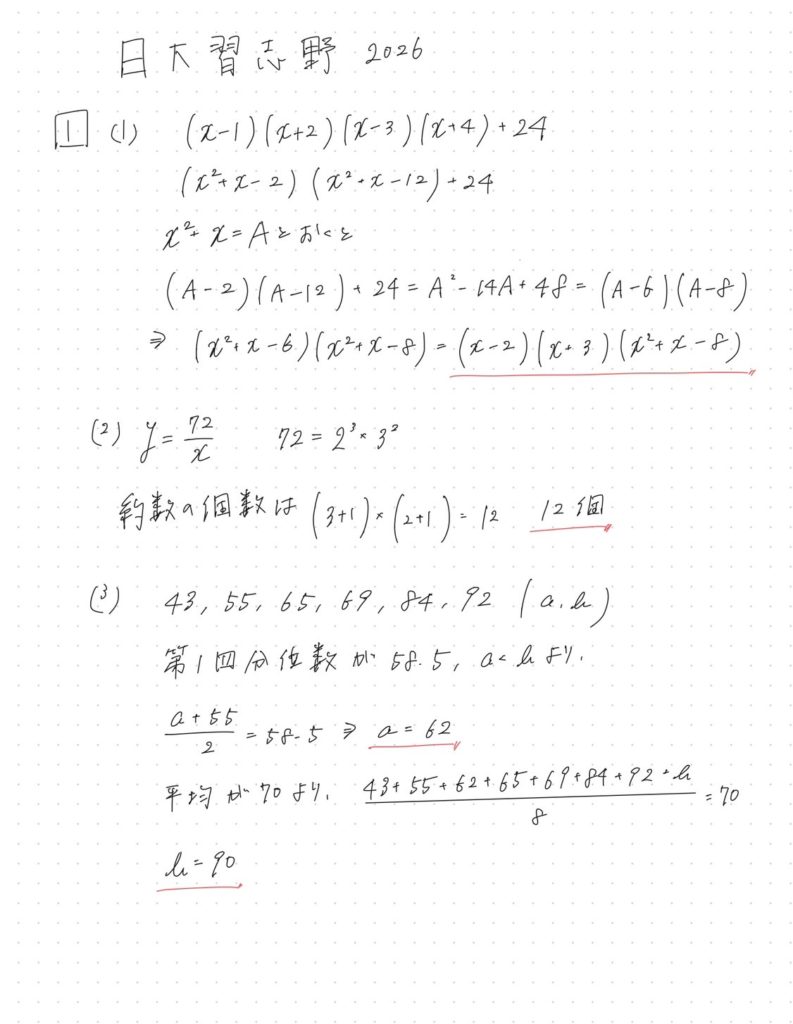 日大習志野 2026
1 (1) (x-1)(x+2)(x-3)(x+4)+24
(x²+x-2)(x²+x-12)+24
x²+x=Aとおくと
(A-2)(A-12)+24=A²-14A+48=(A-6)(A-8)
⇒ (x²+x-6)(x²+x-8)=(x-2)(x+3)(x²+x-8)
(2) y=72/x 72=2³×3²
約数の個数は (3+1)×(2+1)=12 12個
(3) 43, 55, 65, 69, 84, 92 (a, b)
第1四分位数が 58.5, a<b より.
(a+55)/2=58.5 ⇒ a=62
平均が70より. (43+55+62+65+69+84+92+b)/8=70
b=90